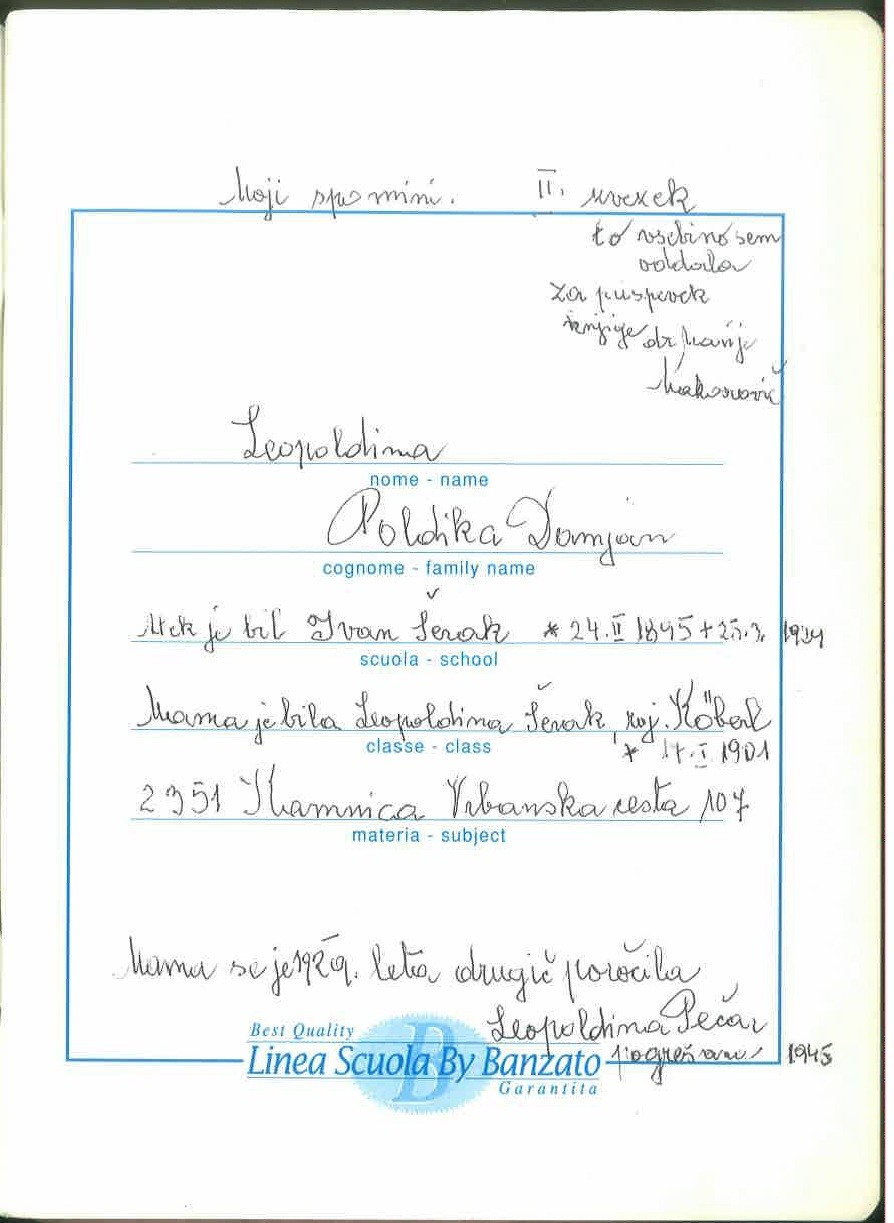 Moji spomini. II. zvezek
to vsebino sem
oddala
za prispevek
knjige dr Marije
Makarovič
Leopoldina
nome - name
Poldika Domjan
cognome - family name
Atek je bil Ivan Šerak * 24. II 1895 + 25.3. 1924
scuola - school
Mama je bila Leopoldina Šerak, roj. Köberl
classe - class
* 17. I 1901
2351 Kamnica Vrbanska cesta 107
materia - subject
Mama se je 1929. leta drugič poročila
Leopoldina Pečar
pogrešan 1945
Best Quality
Linea Scuola By Banzato
Garantita